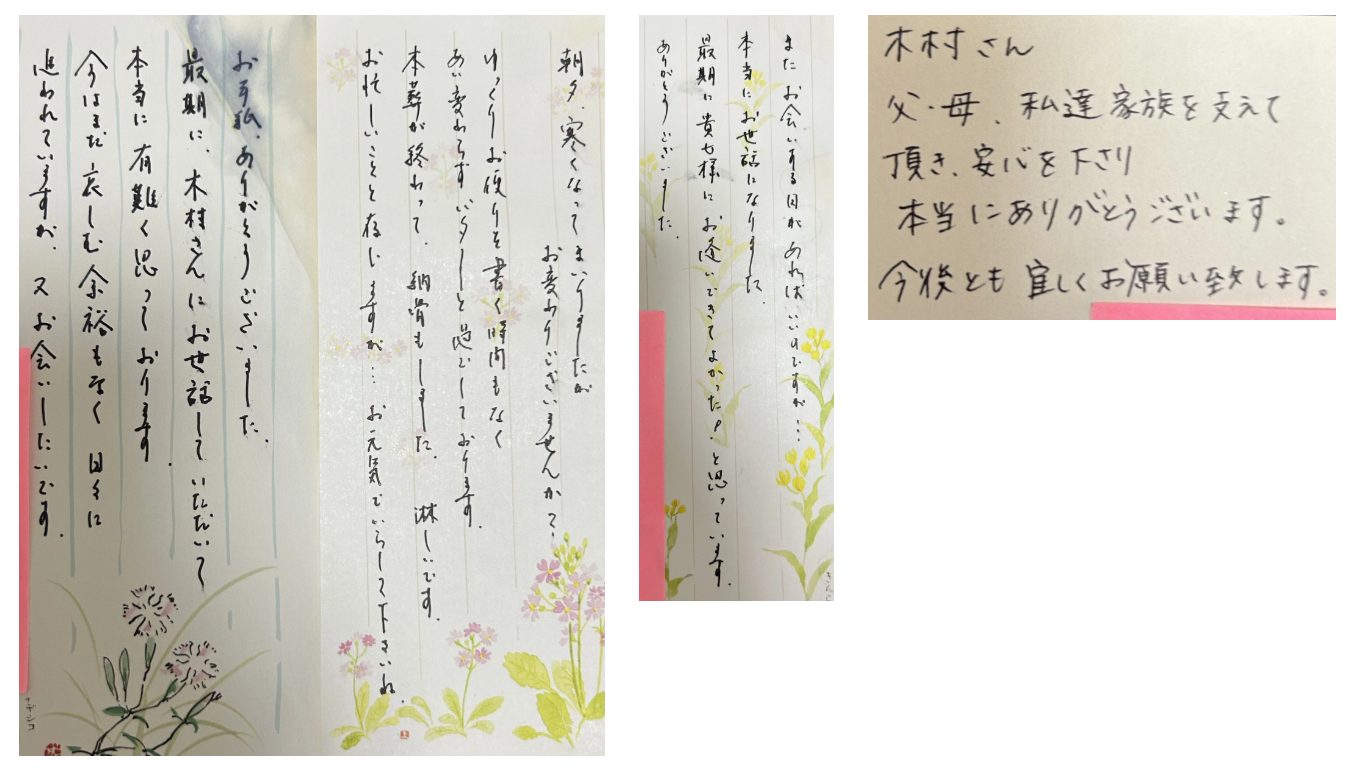 朝夕、寒くなってまいりましたが
お変わりございませんか？
ゆっくりお便りを書く時間もなく
あい変わらずバタバタと過ごしております。
本葬が終わって、納骨もしました。淋しいです。
お忙しいことと存じますが…お元気でいらして下さいね。
お手紙、ありがとうございました。
最期に、木村さんにお世話していただいて
本当に有難く思っております。
今はまだ哀しむ余裕もなく日々に
追われていますが、又お会いしたいです。
ナデシコ
またお会いする日があればいいのですが…
本当にお世話になりました。
最期に貴女様にお逢いできてよかった！と思っています。
ありがとうございました。
きんらん
木村さん
父・母、私達家族を支えて
頂き、安心を下さり
本当にありがとうございます。
今後とも宜しくお願い致します。